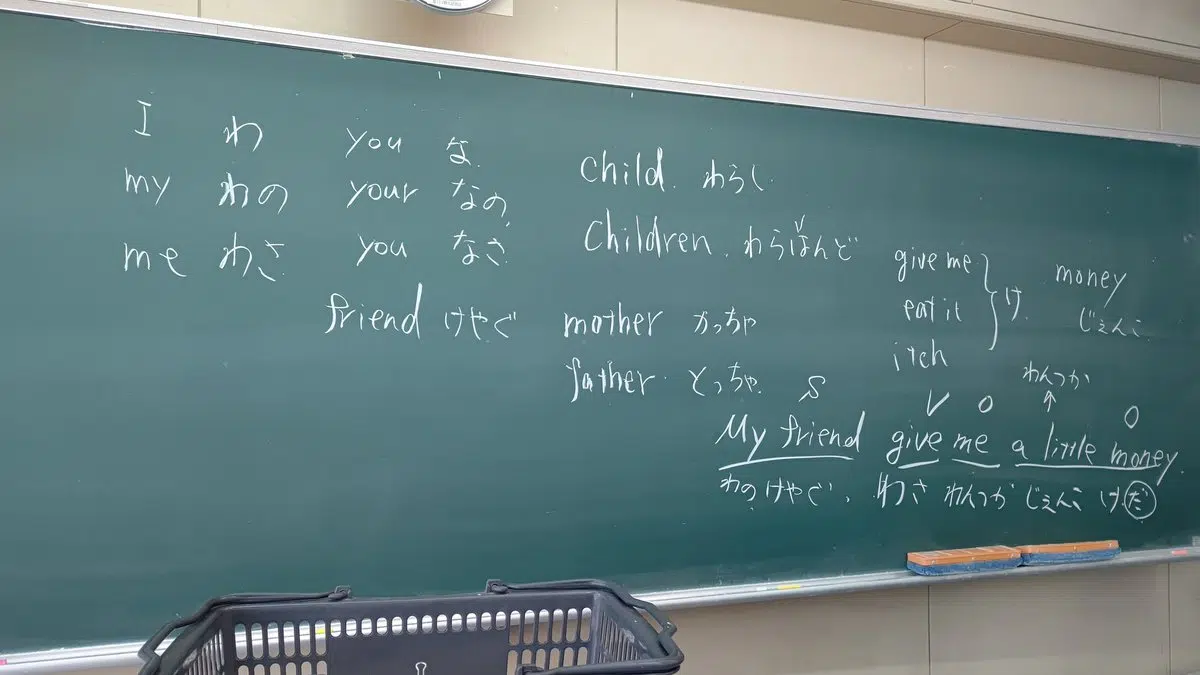 I わ you な
my わの your なの
me わさ you なさ
child わらし
children わらはんど
friend けやぐ mother かっちゃ
father とっちゃ
give me
eat it け
itch
money
じぇんこ
わんつか
S V O O
My friend give me a little money.
わのけやぐ、わさ わんつか じぇんこ けだ